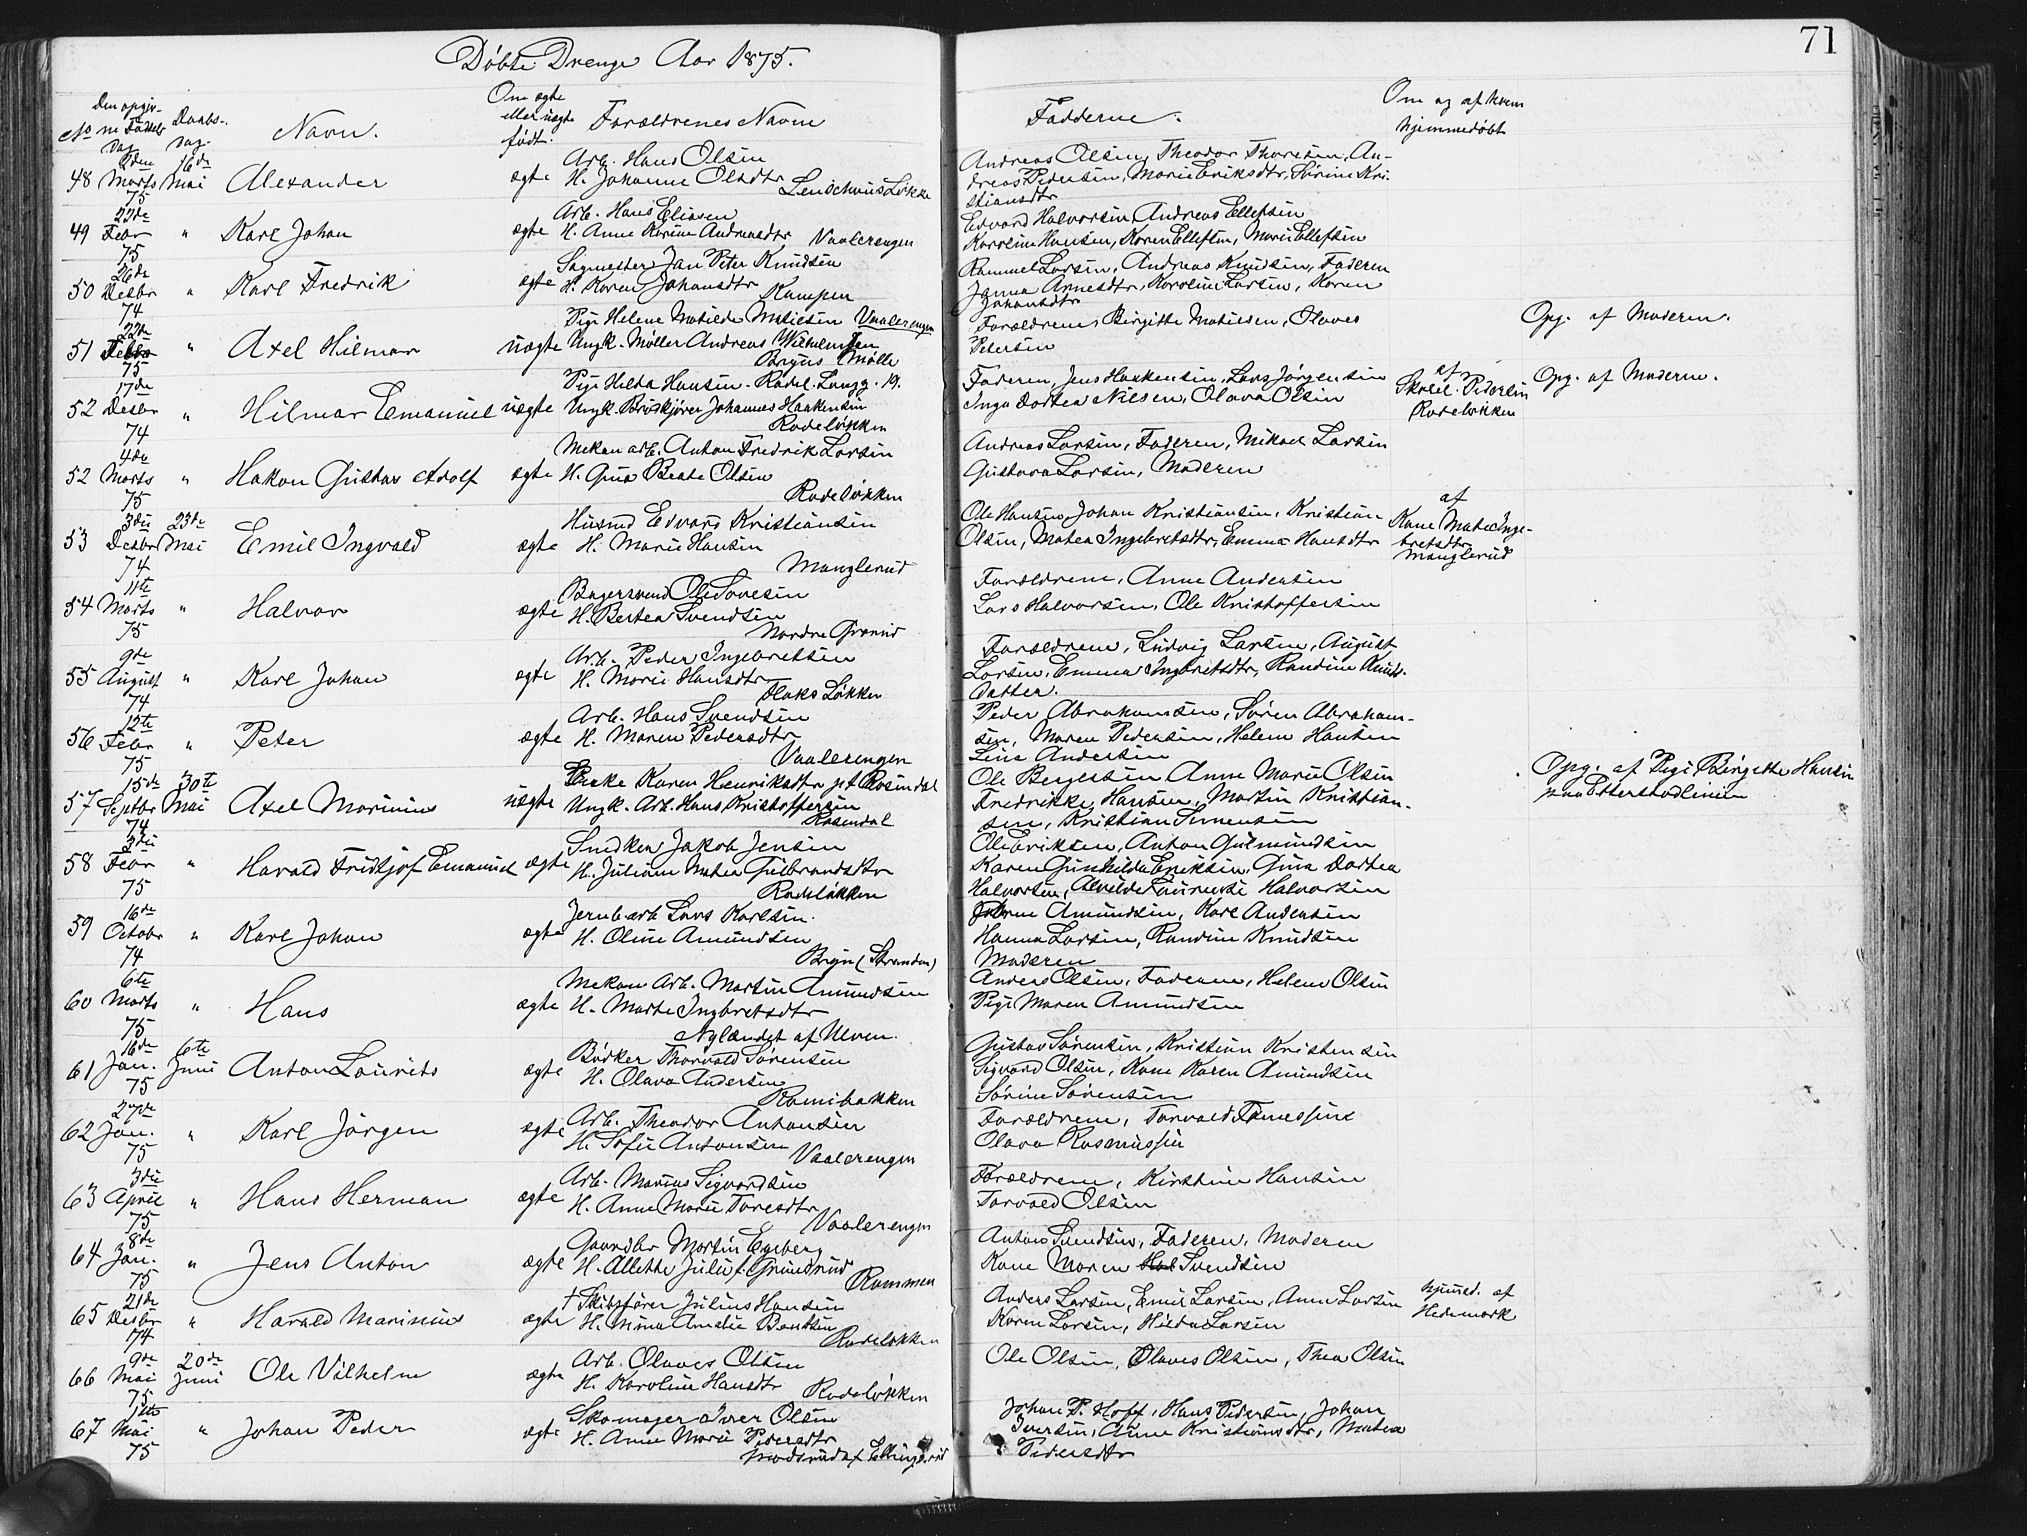 71
Døbte Drenge Aar 1875.
No
Den opgivne Fødselsdag
Daabsdag
Navn.
Om ægte eller uægte født.
Forældrenes Navne
Fadderne.
Om og af hvem hjemmedøbt
48 Marts 75 16de Mai Alexander ægte Arb. Hans Olsen
H. Johanne Olsdtr
Andreas Olsen, Theodor Thoresen, An-
dreas Pedersen, Marie Eriksdtr, Sørine Kri-
stiansdtr
49 22de Febr 75 " Karl Johan ægte Arb. Hans Eliasen
H. Anne Karine Andreasdtr Vaalerengen
Edvard Halvorsen, Andreas Ellefsen
Karoline Hansen, Karen Ellefsen, Marie Ellefsen
50 26de Desbr 74 " Karl Fredrik ægte Sagmester Jan Peter Knudsen
H. Karen Johansdtr Kampen
Larsen, Andreas Knudsen, Faderen
Janna Arnesdtr, Karoline Larsen, Karen
Johansdtr
51 22de Febr 75 " Axel Hilmar uægte Pige Helene Matilde Matiesen Vaalerengen
Ungk. Møller Andreas Wilhelmsen
Bryns Mølle
Forældrene, Birgitte Matiesen, Olaves
Petersen
Opg. af Moderen.
52 17de Desbr 74 " Hilmar Emanuel uægte Pige Hilda Hansen. Rodel. Langg. 19.
Ungk. Johannes Haakensen
Rodeløkken
Faderen, Jens Haakensen, Lars Jørgensen
Inga Dortea Nilsen, Olava Olsen
af
Pedersen
Rodeløkken
Opg. af Moderen.
52 4de Marts 75 " Hakon Gustav Adolf ægte Mekan. arb. Anton Fredrik Larsen
H. Gina Beate Olsen
Rodeløkken
Andreas Larsen, Faderen, Mikael Larsen
Gustava Larsen, Moderen
53 3die Desbr 74 23de Mai Emil Ingvald ægte Husmd Edvard Kristiansen
H. Marie Hansen
Manglerud
Ole Hansen, Johan Kristiansen, Kristian
Olsen, Matea Ingebretsdtr, Emma Hansdtr
af
Kone Matea Inge-
bretsdtr
Manglerud
54 11te Marts 75 " Halvor ægte Bagersvend Ole Tovesen
H. Bertea Svendsen
Nordre
Forældrene, Anne Andersen
Lars Halvorsen, Ole Kristoffersen
55 9de August 74 " Karl Johan ægte Arb. Peder Ingebretsen
H. Marie Hansdtr
Flaks Løkken
Forældrene, Ludvig Larsen, August
Larsen, Emma Ingebretsdtr, Randine Knuds-
datter.
56 12te Febr 75 " Peter ægte Arb. Hans Svendsen
H. Maren Pedersdtr
Vaalerengen
Peder Abrahamsen, Søren Abraham-
sen, Maren Pedersen, Helene Hansen
Lina Andersen
57 15de Septbr 74 30te Mai Axel Marinius uægte Enke Karen Henriksdtr pt Rosendal
Ungk. Arb. Hans Kristoffersen
Rosendal
Ole Bergersen Anne Marie Olsen
Fredrikke Hansen, Martin Kristian-
sen, Kristian Simensen
Opg. af Pige Birgitte Hansen
paa Etterstadlinien
58 3die Febr 75 " Harald Fridtjof Emanuel ægte Jakob Jensen
H. Juliane Matea Gulbrandsdtr
Rodeløkken
Ole Eriksen, Anton Gulmundsen
Karen Gunhilda Eriksen, Gina Dortea
Halvorsen, Alvilde Halvorsen
59 16de Octobr 74 " Karl Johan ægte Jernb. arb Lars Karlsen.
H. Oline Amundsen
Bryn (Stranden)
Amundsen, Karl Andersen
Hanna Larsen, Randine Knudsen
Moderen
60 6te Marts 75 " Hans ægte Mekan Arb. Martin Amundsen
H. Marte Ingbretsdtr
Nylændet af Ulven.
Anders Olsen, Faderen, Helene Olsen
Pige Maren Amundsen
61 16de Jan. 75 6te Juni Anton Laurits ægte Bødker Thorvald Sørensen
H. Olava Andersen
Gustav Sørensen, Kristian Kristensen
Sigvard Olsen, Kone Karen Amundsen
Sørine Sørensen
62 27de Jan. 75 " Karl Jørgen ægte Arb. Theodor Antonsen
H. Sofie Antonsen
Vaalerengen
Forældrene, Torvald
Olava Rasmussen
63 3die April 75 " Hans Herman ægte Arb. Marius Sigvardsen
H. Anne Marie Toresdtr
Vaalerengen
Forældrene, Kirstine Hansen
Torvald Olsen
64 8de Jan. 75 " Jens Anton ægte Gaardbr Martin Egeberg
H. Allette Julie f. Grimsrud
Rommen
Anton Svendsen, Faderen, Moderen
Kone Maren Svendsen
65 21de Desbr 74 " Harald Marinius ægte † Skibsfører Julius Hansen
H. Mina Amalie Bentsen
Rodeløkken
Anders Larsen, Emil Larsen, Anne Larsen
Karen Larsen, Hilda Larsen
hjemd. af
Hedemark
66 9de Mai 75 20de Juni Ole Vilhelm ægte Arb. Olaves Olsen
H. Karoline Hansdtr Rodeløkken
Ole Olsen, Olaves Olsen, Thea Olsen
67 Mai 75 " Johan Peder ægte Skomager Iver Olsen
H. Anne Marie Pedersdtr
Johan P. Hoff, Hans Pedersen, Johan
Iversen, Anne Kristiansdtr, Matea
Pedersdtr